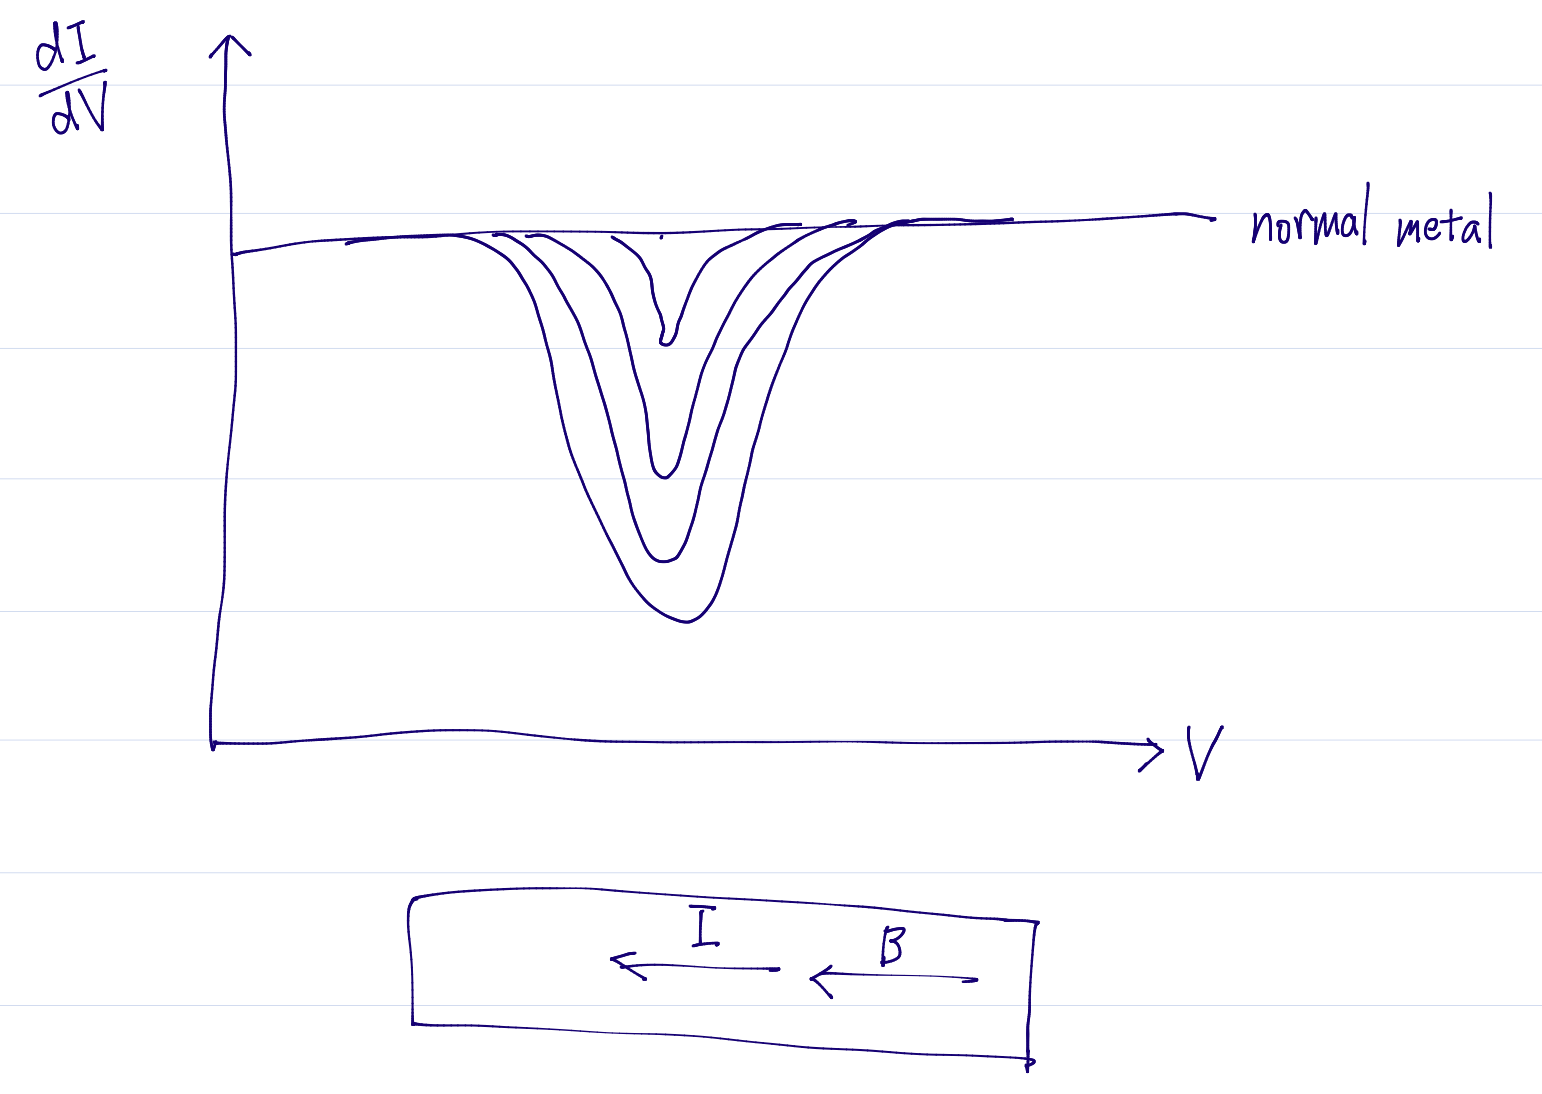 dI
dV
normal metal
V
I
B